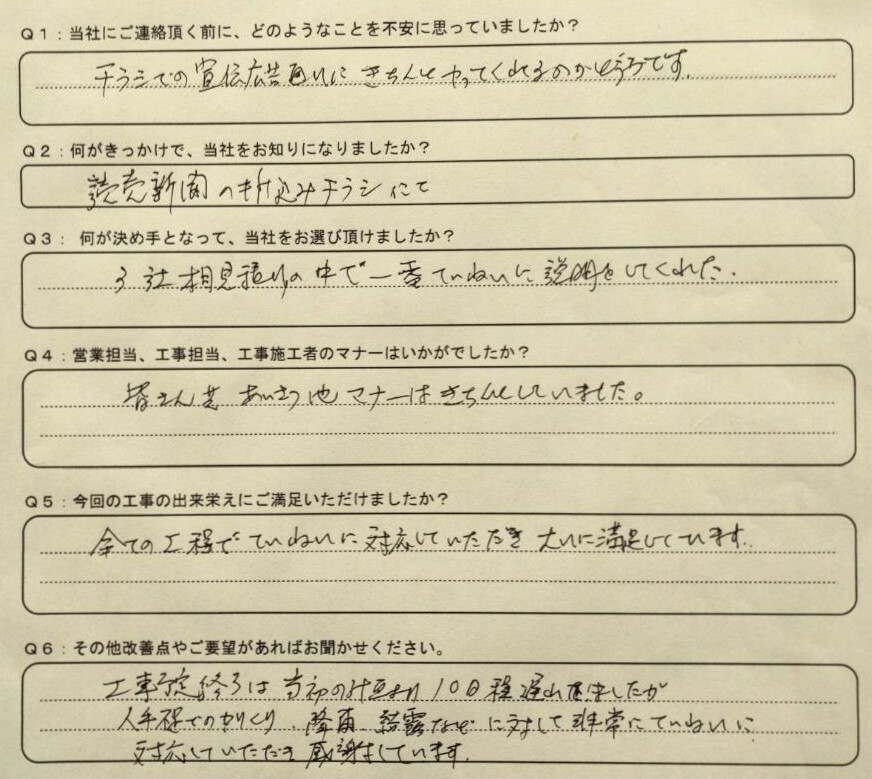 Q1：当社にご連絡頂く前に、どのようなことを不安に思っていましたか？
チラシでの宣伝広告通りに きちんと やってくれるのか
Q2：何がきっかけで、当社をお知りになりましたか？
読売新聞の折込みチラシにて
Q3： 何が決め手となって、当社をお選び頂けましたか？
3社相見積りの中で一番ていねいに説明をしてくれた.
Q4：営業担当、工事担当、工事施工者のマナーはいかがでしたか？
皆さん共 あいさつ他マナーはきちんとしていました。
Q5：今回の工事の出来栄えにご満足いただけましたか？
全ての工程でていねいに対応していただき大いに満足しています.
Q6：その他改善点やご要望があればお聞かせください。
工事予定終了は当初の計画より10日程遅れましたが
人手 でのやりくり、降雨 結露などに対して非常にていねいに
対応していただき感謝しています.